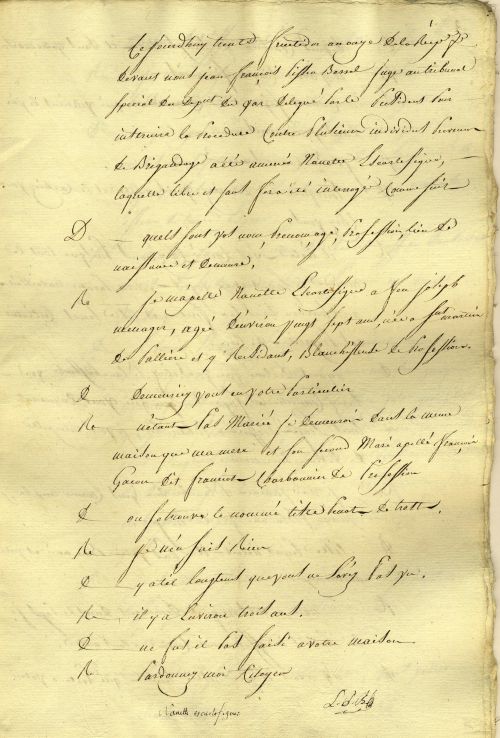 Ce jourdhuy trente fructidor an onze de la Rep. f.se
devant nous jean françois Bossel juge au tribunal
special du Dep.nt du Var délégué par le President pour
instruire la procedure Contre plusieurs individus prevenus
de Brigandage a été amenée Nanette Escartefigue,
laquelle libre et sans fers a été interrogé Comme suit
D — quels sont vos nom, prenom, age, profession, lieu de
naissance et demeure,
R Je m'apelle Nanette Escartefigue a feu joseph
menager, agé d'environ vingt sept ans, née a St martin
de Pallière et y Residant, Blanchisseuse de profession.
D Demeuriez vous en votre particulier
R n'étant pas Mariée je demeurois dans la meme
maison que ma mere et son second Mari apellé françois
Garcin dit francois Charbonnier de profession
D ou se trouve le nommé de trets.
R je n'en sais Rien
D y a til longtems que vous ne l'avez pas vu.
R il y a Environ trois ans.
D ne fut il pas saisi a votre maison
R Pardonnez moi Citoyen
Nanette escartefigue